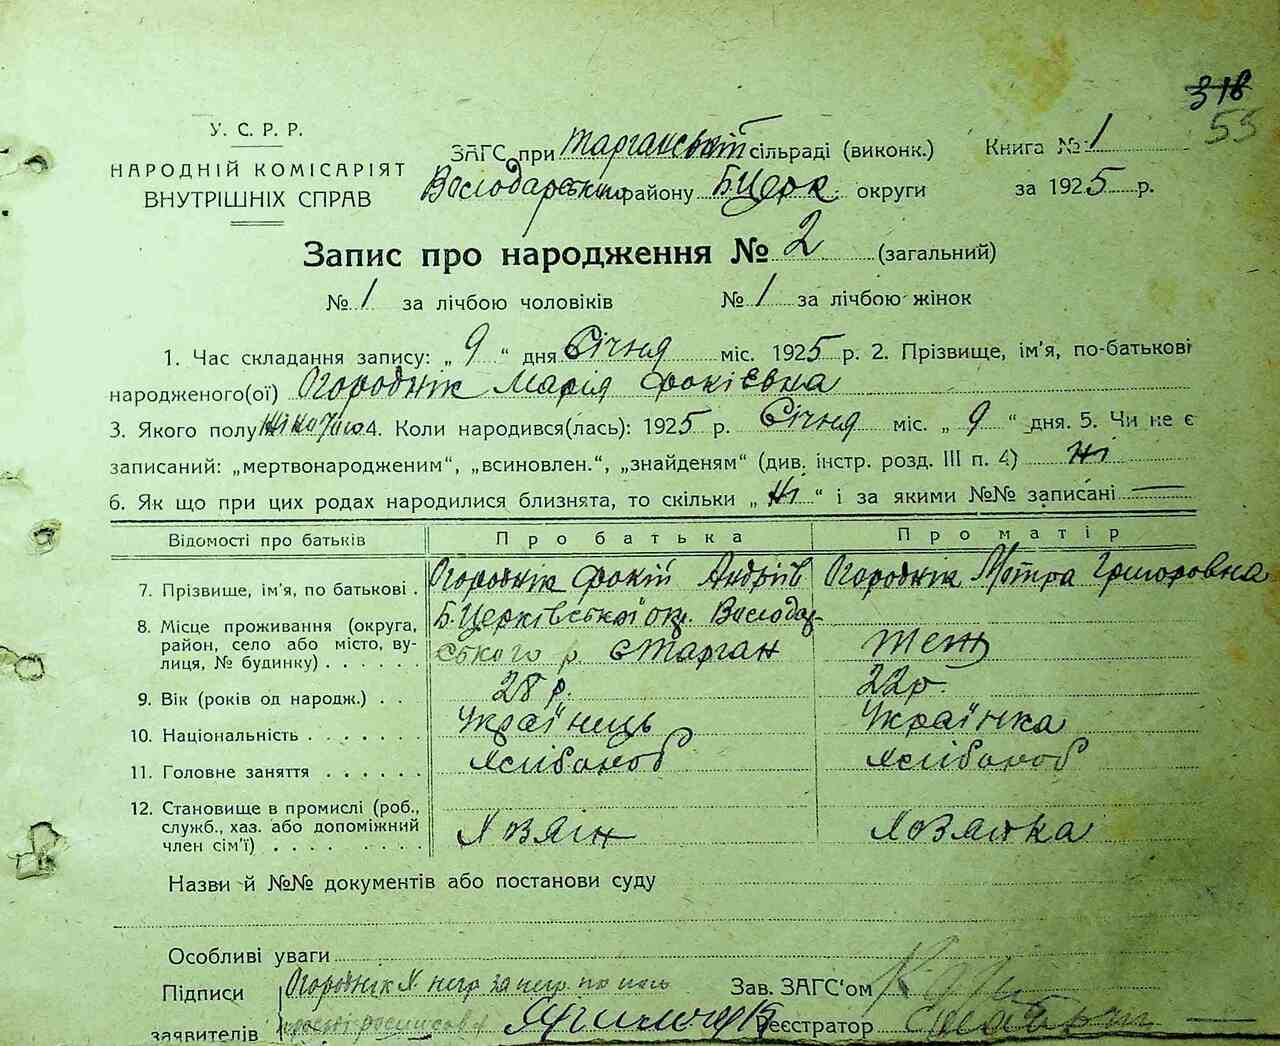 318
53
У. С. Р. Р.
НАРОДНІЙ КОМІСАРІЯТ
ВНУТРІШНІХ СПРАВ
ЗАГС при Тарганській сільраді (виконк.) Книга № 1
Володарського району Б Церк. округи за 1925 р.
Запис про народження № 2 (загальний)
№ 1 за лічбою чоловіків № 1 за лічбою жінок
1. Час складання запису: „ 9 “ дня Січня міс. 1925 р. 2. Прізвище, ім'я, по-батькові
народженого(ої) Огороднік Марія Фокієвна
3. Якого полу жіночого 4. Коли народився(лась): 1925 р. Січня міс. „ 9 “ дня. 5. Чи не є
записаний: „мертвонародженим“, „всиновлен.“, „знайденям“ (див. інстр. розд. III п. 4) Ні
6. Як що при цих родах народилися близнята, то скільки „ Ні “ і за якими №№ записані —
Відомості про батьків Про батька Про матір
7. Прізвище, ім'я, по батькові . Огороднік Фокій Андріїв Огороднік Мотра Григоровна
8. Місце проживання (округа, район, село або місто, вулиця, № будинку) . . . . . . Б. Церківської окр. Володарського р. с Тарган теж
9. Вік (років од народж.) . . 28 р. 22 р.
10. Національність . . . . . . Українець Українка
11. Головне заняття . . . . . . Хлібороб Хлібороб
12. Становище в промислі (роб., служб., хаз. або допоміжний член сім'ї) . . . . . . . . Хозяін Хозяйка
Назви й №№ документів або постанови суду
Особливі уваги
Підписи Огороднік Х. негр. за негр. по
Зав. ЗАГС'ом
заявителів
Реєстратор